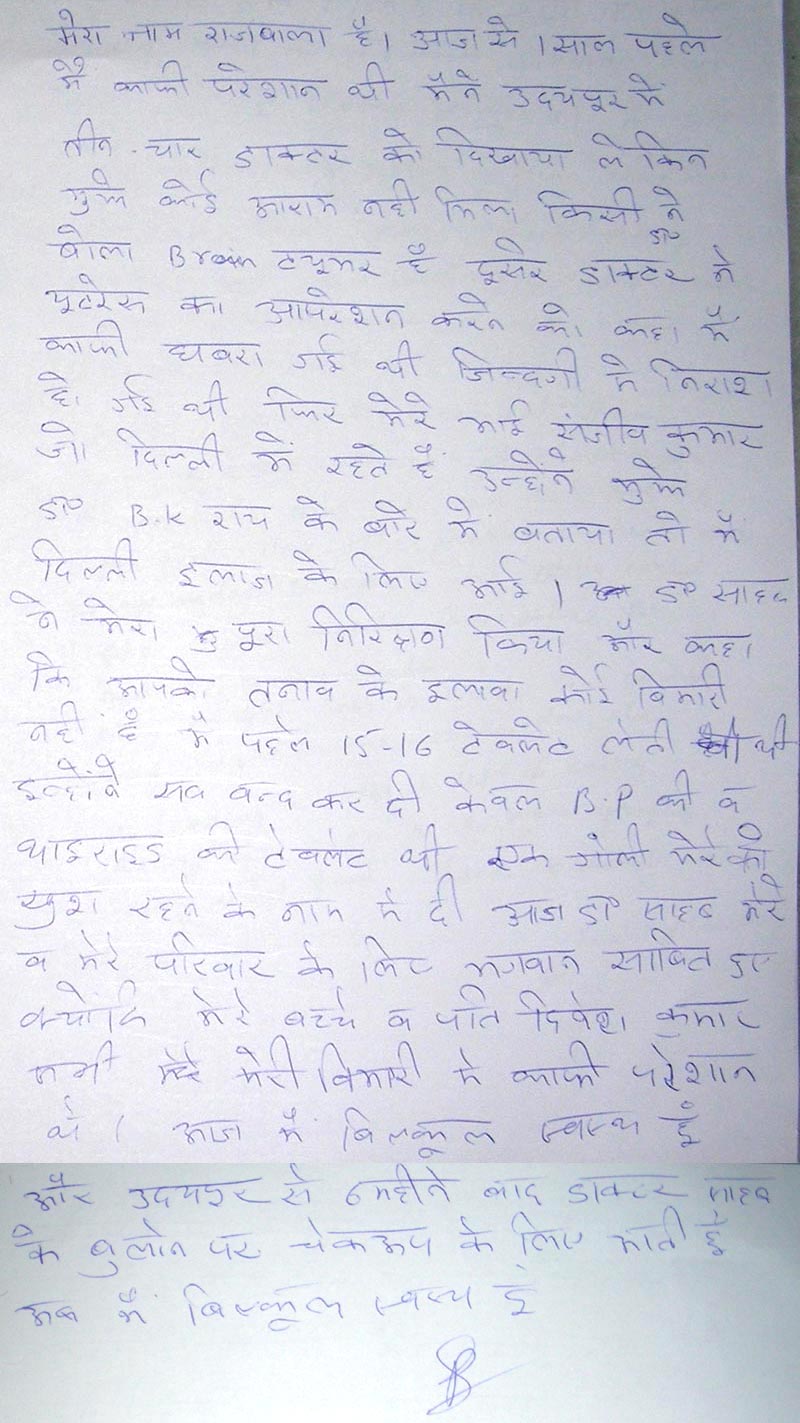 मेरा नाम राजबाला है। आज से 1 साल पहले
मैं काफी परेशान थी मैंने उदयपुर में
तीन-चार डाक्टर को दिखाया लेकिन
मुझे कोई आराम नही मिला किसी ने
बोला Brain ट्यूमर है दूसरे डाक्टर ने
यूटरेस का आपरेशन करने को कहा मैं
काफी घबरा गई थी जिन्दगी से निराश
हो गई थी फिर मेरे भाई संजीव कुमार
जो दिल्ली में रहते हैं उन्होंने मुझे
डा० B.K राय के बारे में बताया तो मैं
दिल्ली इलाज के लिए आई। डा० साहब
ने मेरा पूरा निरिक्षण किया और कहा
कि आपको तनाव के इलावा कोई बिमारी
नही है मैं पहले 15-16 टेबलेट लेती थी
इन्होंने सब बन्द कर दी केवल B.P की व
थाइराइड की टेबलेट थी एक गोली मेरे को
खुश रहने के नाम से दी आज डा० साहब मेरे
व मेरे परिवार के लिए भगवान साबित हुए
क्योंकि मेरे बच्चे व पति दिपेश कुमार
सभी मेरी बिमारी से काफी परेशान
थे। आज मैं बिल्कूल स्वस्थ हूँ
और उदयपुर से 6 महीने बाद डाक्टर साहब
के बुलाने पर चेकअप के लिए आती हूँ
अब मैं बिल्कूल स्वस्थ हूँ